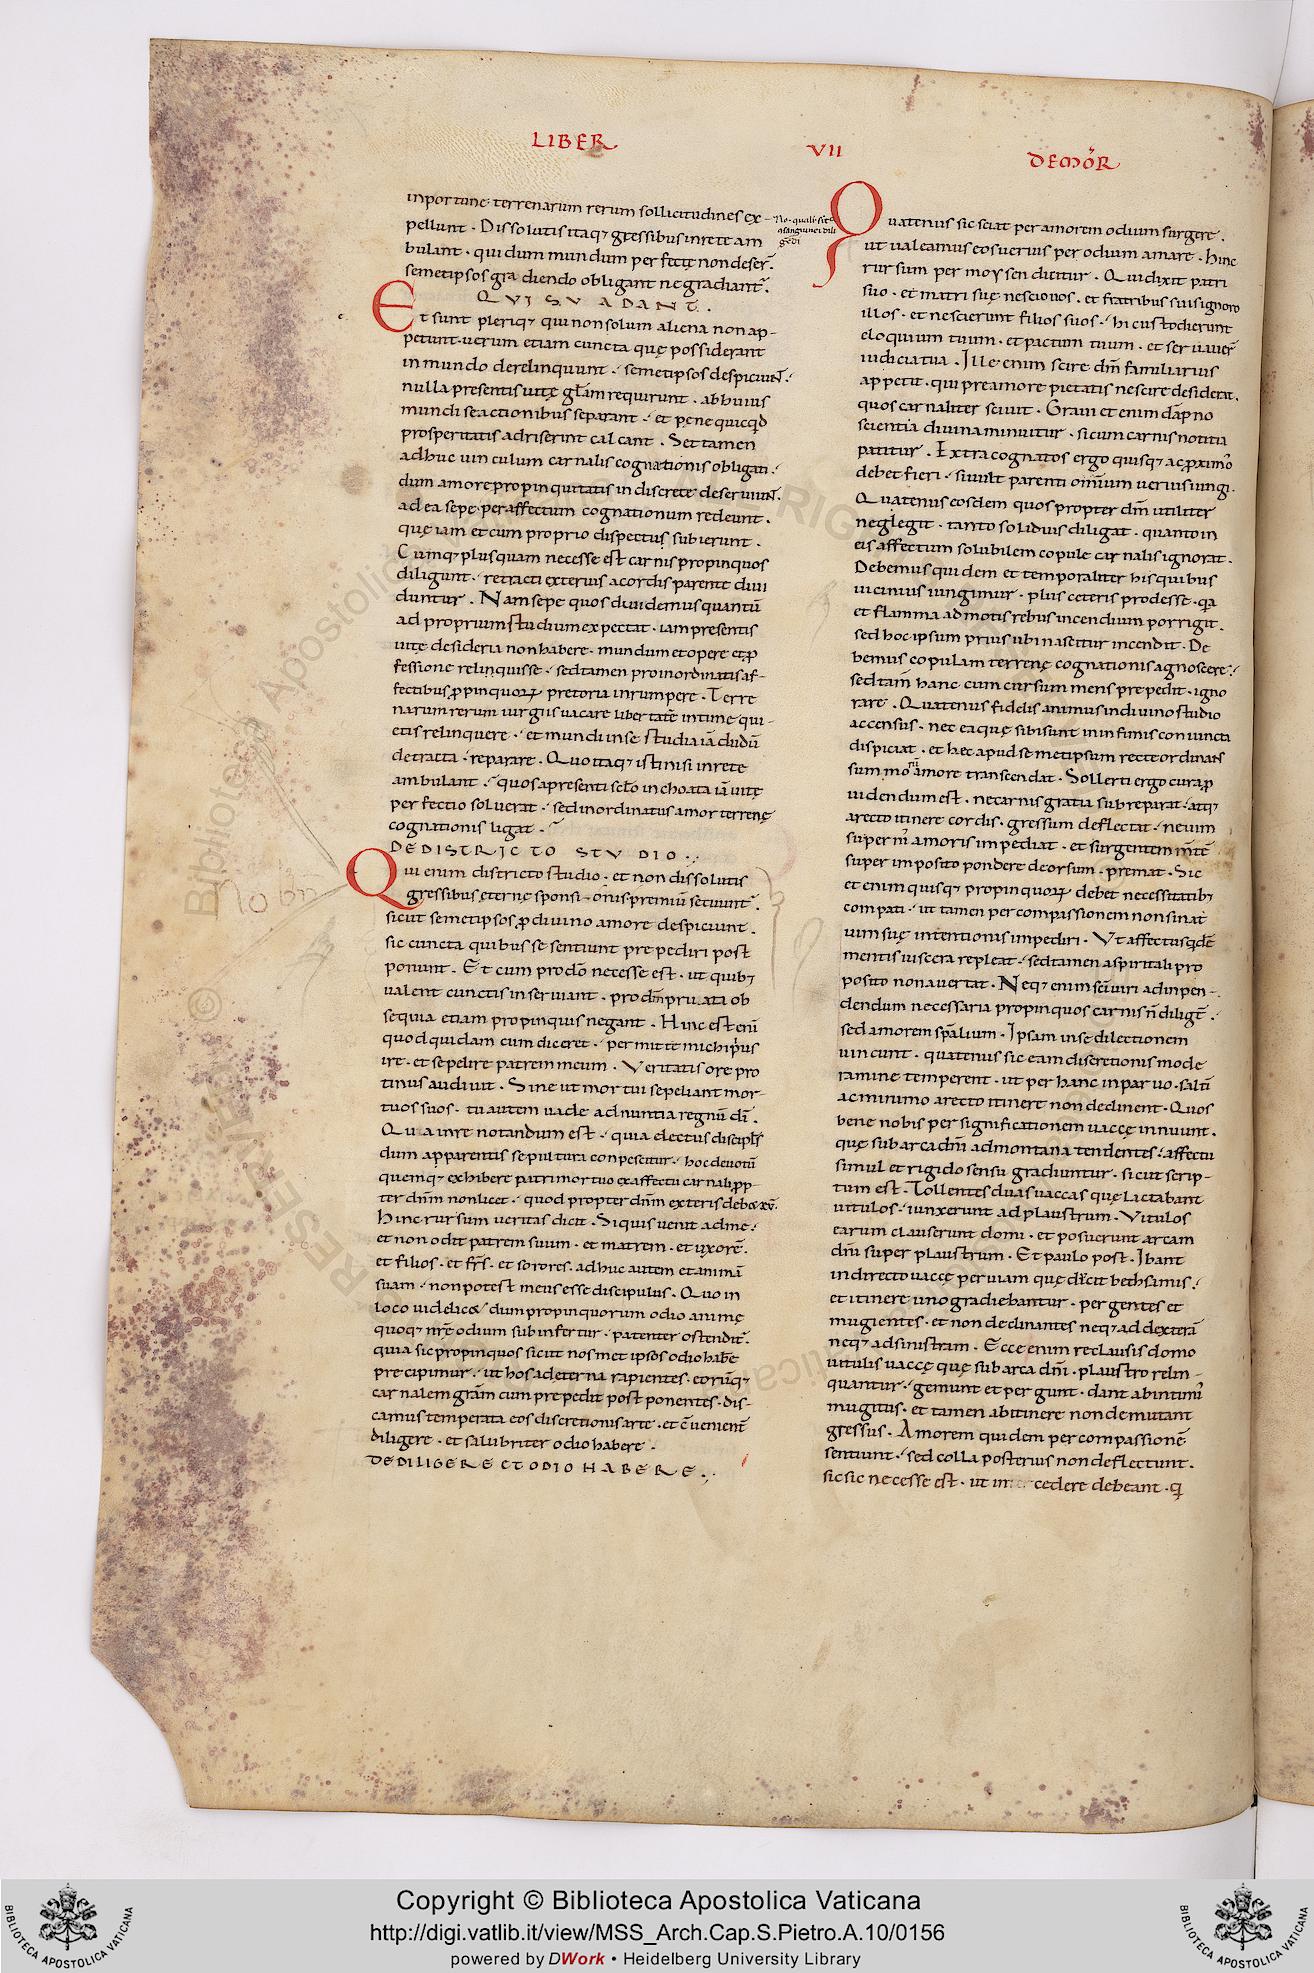 LIBER
VII
DEMOR̄
inportune· terrenarum rerum sollicitudines ex-
pellunt · Dissolutis itaq; gressibus inrete am
bulant · qui dum mundum perfecte non deser̄·
semetipsos gradiendo obligant ne gradiant̄·
QVI SVADANT·
Et sunt pleriq; qui non solum aliena non ap-
petunt· verum etiam cuncta quę possiderant
in mundo derelinquunt · semetipsos despiciunt·
nulla presentis uitę gl̄am requirunt · ab huius
mundi se actionibus separant · et pene quicq̄d
prosperitatis adriserint calcant · Set tamen
adhuc uinculum carnalis cognationis obligati·
dum amore propinquitatis indiscrete deseruiunt·
ad ea sepe· per affectum cognationum redeunt·
quę iam et cum proprio dispectus subierunt ·
Cumq; plusquam necesse est carnis propinquos
diligunt · retracti exterius a cordis parente diui
duntur · Nam sepe quos duidemus quantū
ad proprium studium expectat · iam presentis
uitę desideria non habere · mundum et opere et ꝓ
fessione relinquisse · sed tamen pro inordinatis af-
fectibus ꝓpinquoꝝ pretoria inrumpere · Terre
narum rerum iurgiis uacare libertatē intime qui-
etis relinquere · et mundi inse studia iā dudū
detracta · reparare · Quo itaq; isti nisi inrete
ambulant · quos apresenti sclo inchoata iā uitę
perfectio soluerat · sed inordinatus amor terrenę
cognationis ligat ·
DEDISTRICTO STVDIO·
Qui enim districto studio · et non dissolutis
gressibus ęternę sponsionis premiū secuunt̄·
sicut semetipsos ꝓ diuino amore despiciunt ·
sic cuncta quibus se sentiunt prepediri post
ponunt · Et cum pro dō necesse est · ut quib;
ualent cunctis inseruiant · pro dn̄m priuata ob
sequia etiam propinquis negant · Hinc est eni
quod quidam cum diceret · permitte michi p̄us
ire · et sepelire patrem meum · Veritatis ore pro
tinus audiuit · Sine ut mortui sepeliant mor-
tuos suos · tu autem uade adnuntia regnū dī ·
Qua inre notandum est · quia electus discipl̄s
dum apparentis sepultura conpescitur · hoc deuotū
quemq; exhibere patri mortuo ex affectu carnali ꝓp-
ter dn̄m non licet · quod propter dn̄m exteris debet ·
Hinc rursum ueritas dicit · Siquis uenit ad me ·
et non odit patrem suum · et matrem · et uxorē ·
et filios · et fr̄s · et sorores · adhuc autem et animā
suam · non potest meus esse discipulus · Quo in
loco uidelic& dum propinquorum odio animę
quoq; nr̄ę odium subinfertur · patenter ostendit̄·
quia sic propinquos sicut nosmet ipsos odio habē
precipimur · ut hos ad eterna rapientes · eorūq;
carnalem grām cum prepedit post ponentes · dis-
camus temperata eos discretionis arte · et cuenient̄
diligere · et salubriter odio habere ·
DEDILIGERE ET ODIO HABERE·
No· quali·sit
gēdi
Quatenus sic sciat per amorem odium surgere ·
ut ualeamus eos uerius per odium amare · Hinc
rursum per moysen dicitur · Qui dixit patri
suo · et matri suę nescio uos · et fratribus suis ignoro
illos · et nescierunt filios suos · hi custodierunt
eloquium tuum · et pactum tuum · et seruauer̄
iudicia tua · Ille enim scire dn̄m familiarius
appetit · qui pre amore pietatis nescire desiderat ·
quos carnaliter sciuit · Graui etenim dāpno
scientia diuina minuitur · si cum carnis notitia
patitur · Extra cognatos ergo quisq; ac ꝓximo
debet fieri · si uult parenti omīum uerius iungi ·
Quatenus eosdem quos propter dn̄m utiliter
neglegit · tanto solidius diligat · quanto in
eis affectum solubilem copule carnalis ignorat ·
Debemus quidem et temporaliter his quibus
uicinius iungimur · plus ceteris prodesse · q̄a
et flamma admotis rebus incendium porrigit ·
sed hoc ipsum prius ubi nascitur incendit · De
bemus copulam terrenę cognationis agnoscere ·
sed tam̄ hanc cum cursum mens prepedit · igno
rare · Quatenus fidelis animus indiuino studio
accensus · nec ea quę sibi sunt in infimis coniuncta
dispiciat · et haec apud semetipsum recte ordinans
summorū amore transcendat · Sollerti ergo cura ꝓ
uidendum est · ne carnis gratia subreparat · atq;
a recto itinere cordis · gressum deflectat · ne uim
superni amoris impediat · et surgentem m̄tē
superimposito pondere deorsum · premat · Sic
et enim quisq; propinquoꝝ debet necessitatib;
compati · ut tamen per compassionem non sinat
uim suę intentionis impediri · Vt affectus q̄dē
mentis uiscera repleat · sed tamen aspiritali pro
posito non auertat · Neq; enim sc̄i uiri ad inpen-
dendum necessaria propinquos carnis n̄ diligt̄ ·
sed amorem sp̄alium · Ipsam inse dilectionem
uincunt · quatenus sic eam discretionis mode
ramine temperent · ut per hanc in paruo · saltī
ac minimo a recto itinere non declinent · Quos
bene nobis per significationem uaccę innuunt ·
quę sub arca dn̄i admontana tendentes · affectu
simul et rigido sensu gradiuntur · sicut scrip-
tum est · Tollentes duas uaccas quę lactabant
uitulos · iunxerunt ad plaustrum · Vitulos
earum clauserunt domi · et posuerunt arcam
dn̄i super plaustrum · Et paulo post · Ibant
indirecto uaccę per uiam quę ducit bethsamis ·
et itinere uno gradiebantur · pergentes et
mugientes · et non declinantes neq; ad dexterā
neq; ad sinistram · Ecce enim reclausis domo
uitulis uaccę quę sub arca dn̄i · plaustro relin-
quantur · gemunt et pergunt · dant ab intimī
mugitus · et tamen ab itinere non demutant
gressus · Amorem quidem per compassionē
sentiunt · sed colla posterius non deflectunt ·
sic sic necesse est · ut cedere debeant · q̄
Copyright © Biblioteca Apostolica Vaticana
http://digi.vatlib.it/view/MSS_Arch.Cap.S.Pietro.A.10/0156
powered by DWork • Heidelberg University Library
BIBLIOTECA APOSTOLICA VATICANA
BIBLIOTECA APOSTOLICA VATICANA